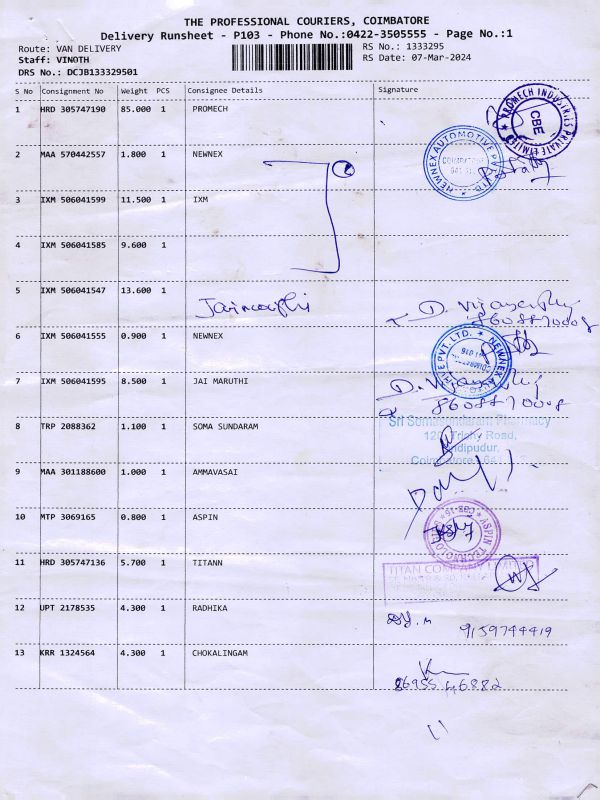 THE PROFESSIONAL COURIERS, COIMBATORE
Delivery Runsheet - P103 - Phone No.:0422-3505555 - Page No.:1
Route: VAN DELIVERY
RS No.: 1333295
Staff: VINOTH
RS Date: 07-Mar-2024
DRS No.: DCJB133329501
S No Consignment No Weight PCS Consignee Details Signature
1 HRD 305747190 85.000 1 PROMECH
PROMECH INDUSTRIES PRIVATE LIMITED CBE
2 MAA 570442557 1.800 1 NEWNEX
NEWNEX AUTOMOTIVE PVT. LTD.
3 IXM 506041599 11.500 1 IXM
4 IXM 506041585 9.600 1
5 IXM 506041547 13.600 1 Jaimaruthi
6 IXM 506041555 0.900 1 NEWNEX
7 IXM 506041595 8.500 1 JAI MARUTHI
8 TRP 2088362 1.100 1 SOMA SUNDARAM
Sri Somasundaram Pharmacy
Trichy Road,
9 MAA 301188600 1.000 1 AMMAVASAI
10 MTP 3069165 0.800 1 ASPIN
11 HRD 305747136 5.700 1 TITANN
TITAN COMPANY LIMITED
12 UPT 2178535 4.300 1 RADHIKA
9159744419
13 KRR 1324564 4.300 1 CHOKALINGAM
86955 46882